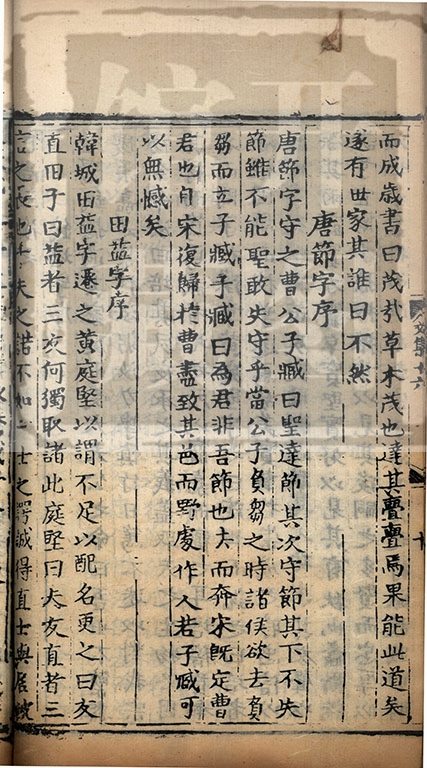 而成歲書曰茂哉草木茂也達其亹亹焉果能此道矣
遂有世家其誰曰不然
唐節字序
唐節字守之曹公子臧曰聖達節其次守節其下不失
節雖不能聖敢失守乎當公子負芻之時諸侯欲去負
芻而立子臧子臧曰為君非吾節也去而奔宋既定曹
君也自宋復歸於曹盡致其邑而野處作人若子臧可
以無憾矣
田益字序
韓城田益字遷之黃庭堅以謂不足以配名更之曰友
直田子曰益者三友何獨取諸此庭堅曰夫友直者三
言之長也千夫之諾不如一士之諤誠得直士與居彼